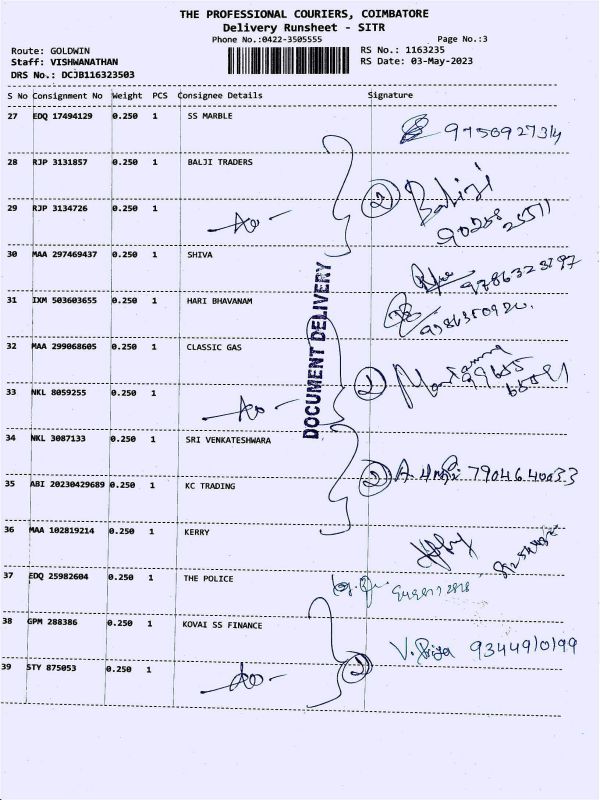 THE PROFESSIONAL COURIERS, COIMBATORE
Delivery Runsheet - SITR
Phone No.:0422-3505555 Page No.:3
Route: GOLDWIN RS No.: 1163235
Staff: VISHWANATHAN RS Date: 03-May-2023
DRS No.: DCJB116323503
S No Consignment No Weight PCS Consignee Details Signature
27 EDQ 17494129 0.250 1 SS MARBLE
28 RJP 3131857 0.250 1 BALJI TRADERS
29 RJP 3134726 0.250 1 - do -
② Balaji
30 MAA 297469437 0.250 1 SHIVA
31 IXM 503603655 0.250 1 HARI BHAVANAM
DOCUMENT DELIVERY
32 MAA 299068605 0.250 1 CLASSIC GAS
②
33 NKL 8059255 0.250 1 - do -
34 NKL 3087133 0.250 1 SRI VENKATESHWARA
② 7904640033
35 ABI 20230429689 0.250 1 KC TRADING
36 MAA 102819214 0.250 1 KERRY
37 EDQ 25982604 0.250 1 THE POLICE
38 GPM 288386 0.250 1 KOVAI SS FINANCE
② V. Priya 9344910199
39 STY 875053 0.250 1 - do -